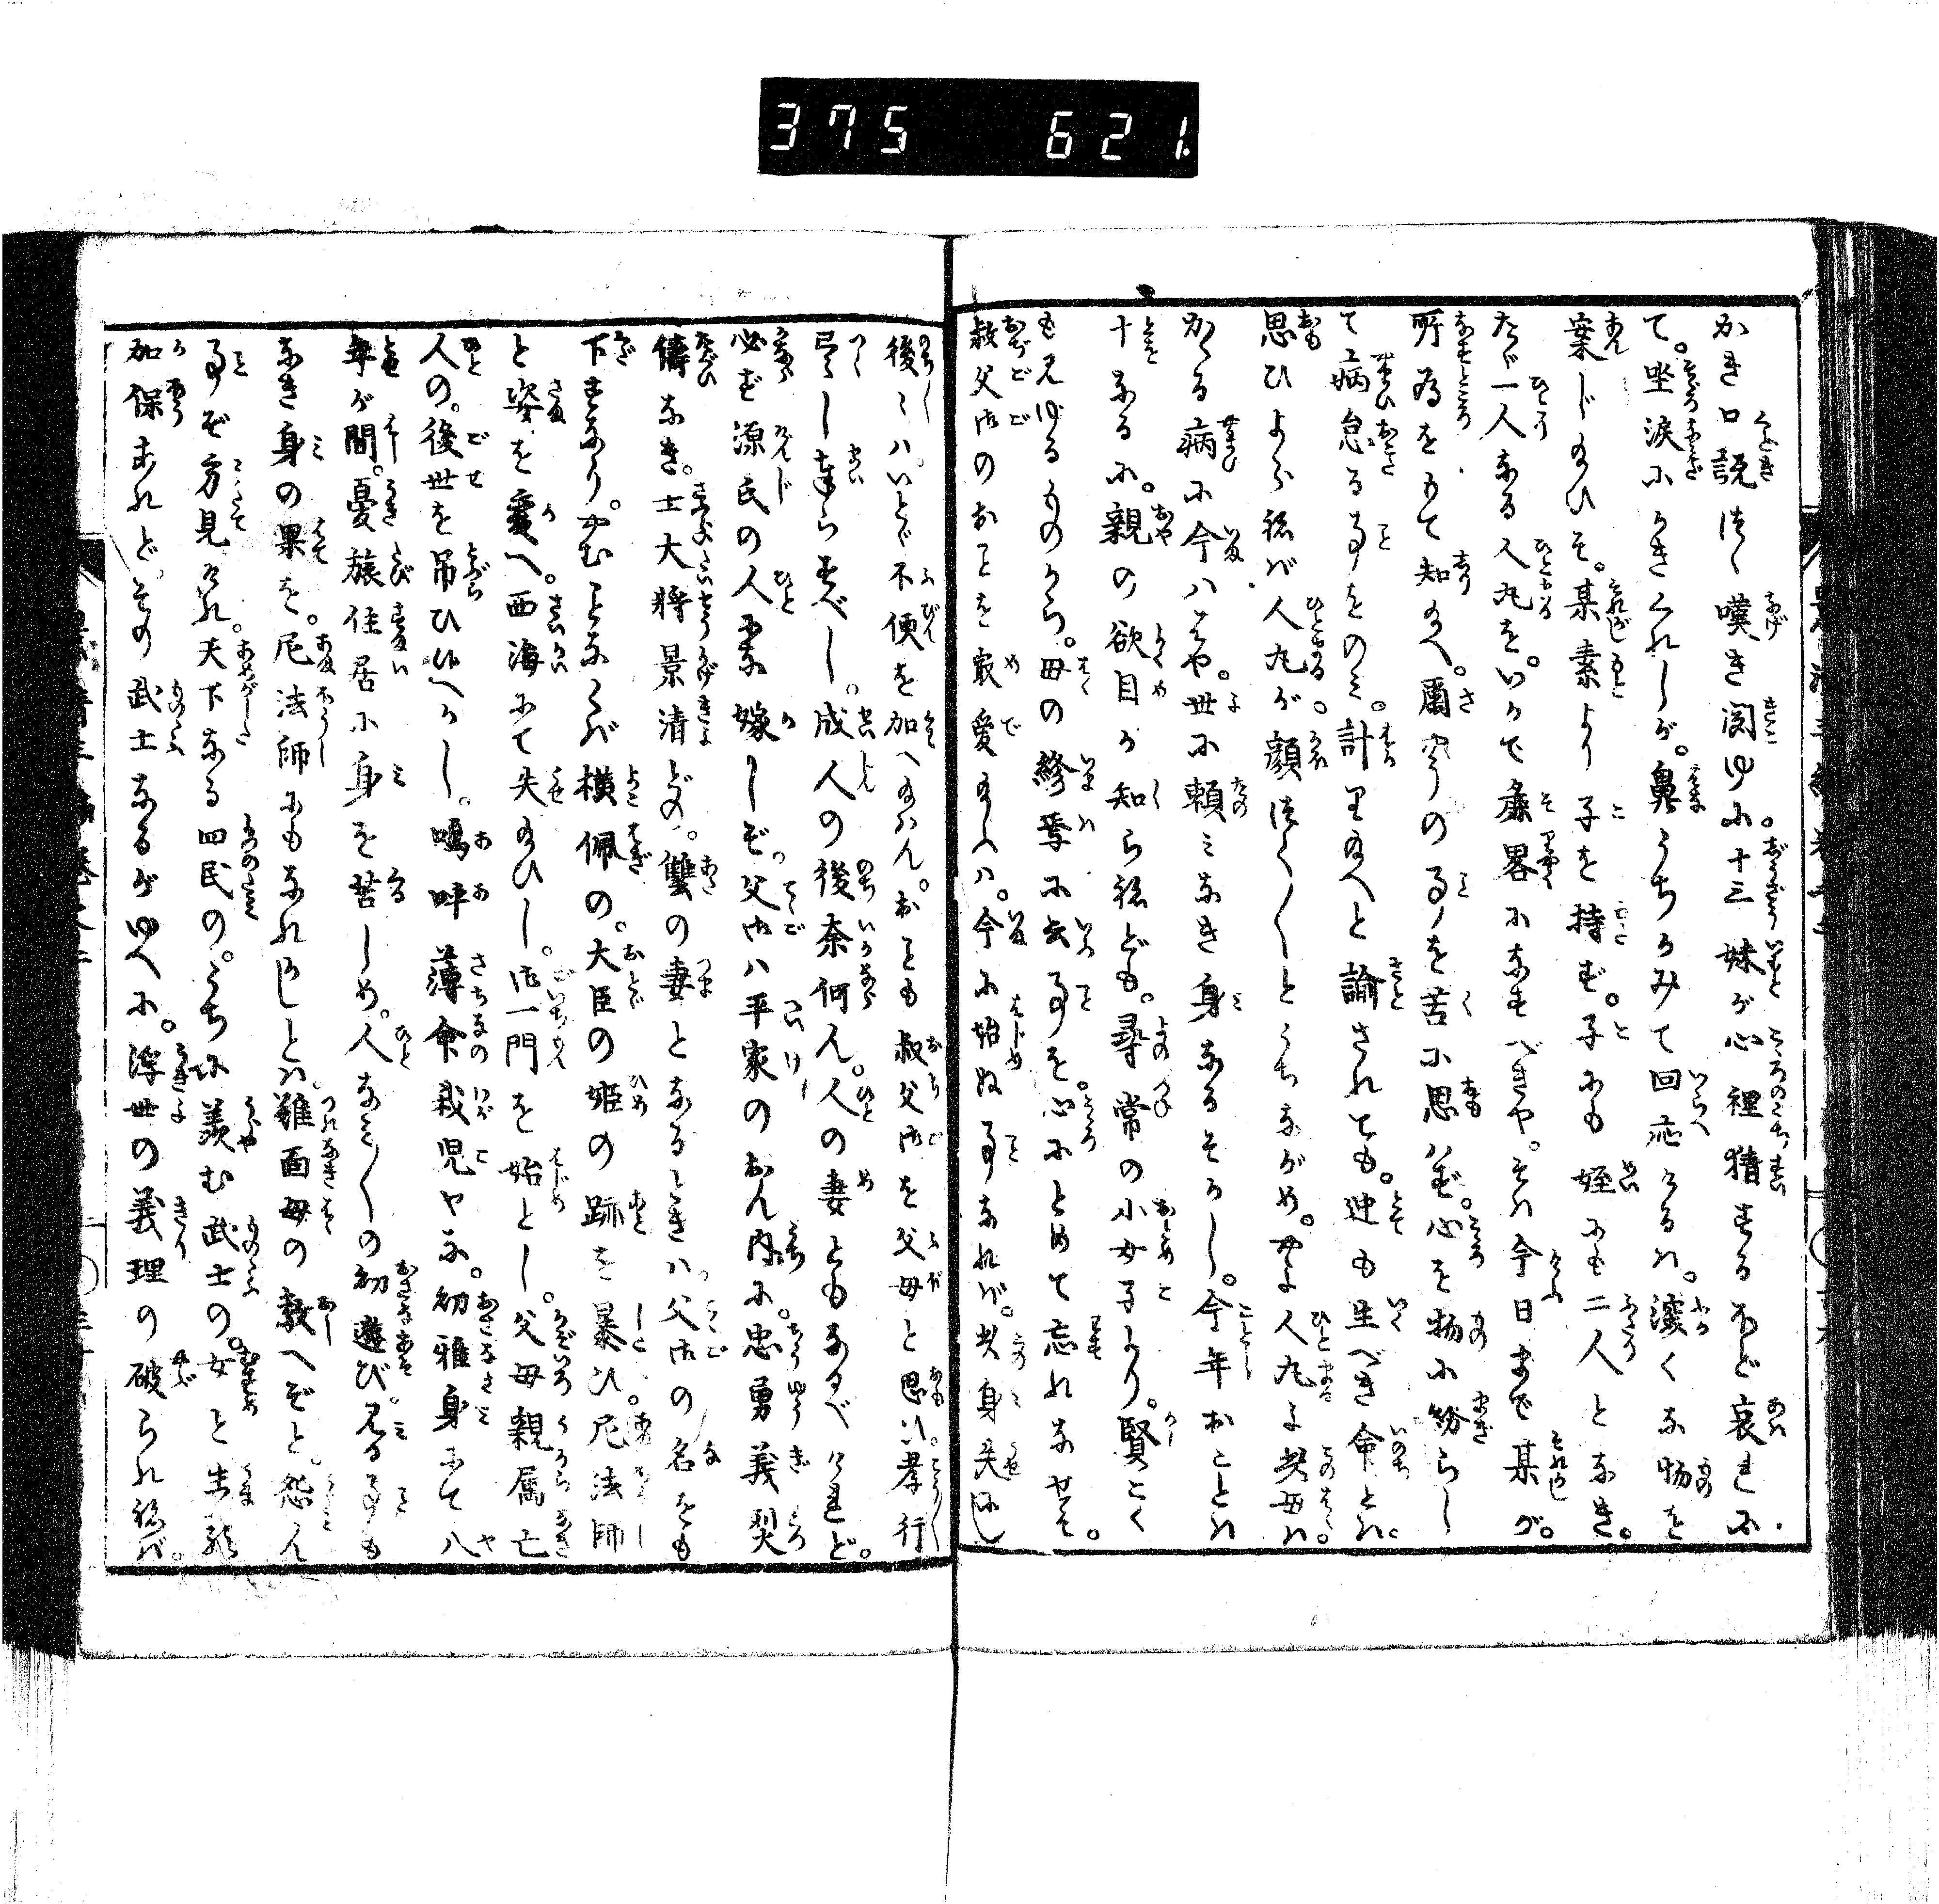 375 621
かき口説つゝ嘆き聞ゆに十三妹が心裡猜するほど哀れに
て。坐涙にかきくれしが。鼻うちかみて回応けるは。漫くな物を
案じ給ひそ。某素より子を持ず。子にも姪にも二人となき。
たゞ一人なる人丸を。いかで麁畧になすべきや。そは今日まで某が。
所為をもて知り給へ。爾許りの事を苦に思はず。心を物に紛らし
て病怠る事をのみ。計り給へと諭されても。迚も生べき命とは。
思ひよらねば人丸が。顔つく〴〵とうちながめ。やよ人丸よ此母は。
かゝる病に今ははや。世に頼みなき身なるぞかし。今年おことは
十なるに。親の欲目か知らねども。尋常の小女子より。賢こく
も見ゆるものから。母の終焉に云事を。心にとめて忘れなせそ。
叔父御のおことを最愛給ふは。今に始ぬ事なれば。此身失にし
後〳〵は。いとゞ不便を加へ給はん。おことも叔父御を父母と思ひ。孝行
尽しまゐらすべし。成人の後奈何ん。人の妻ともなるべけれど。
必ず源氏の人に嫁しぞ。父御は平家のおん内に。忠勇義烈
儔なき。士大将景清どの。讐の妻となるときは。父御の名をも
下すなり。やむことなくば横佩の。大臣の姫の跡を慕ひ。尼法師
と姿を変へ。西海にて失給ひし。御一門を始とし。父母親属亡
人の。後世を吊ひ給へかし。嗚呼薄命我児やな。幼雅身にて八
年が間。憂旅住居に身を苦しめ。人なみ〳〵の幼遊び。見る事も
なき身の果を。尼法師にもなれかしとは。難面母の教へぞと。怨ん
事ぞ方見けれ。天下なる四民の。うちに羨む武士の。女と生れ
加保あれど。その武士なるがゆへに。浮世の義理の破られねば。